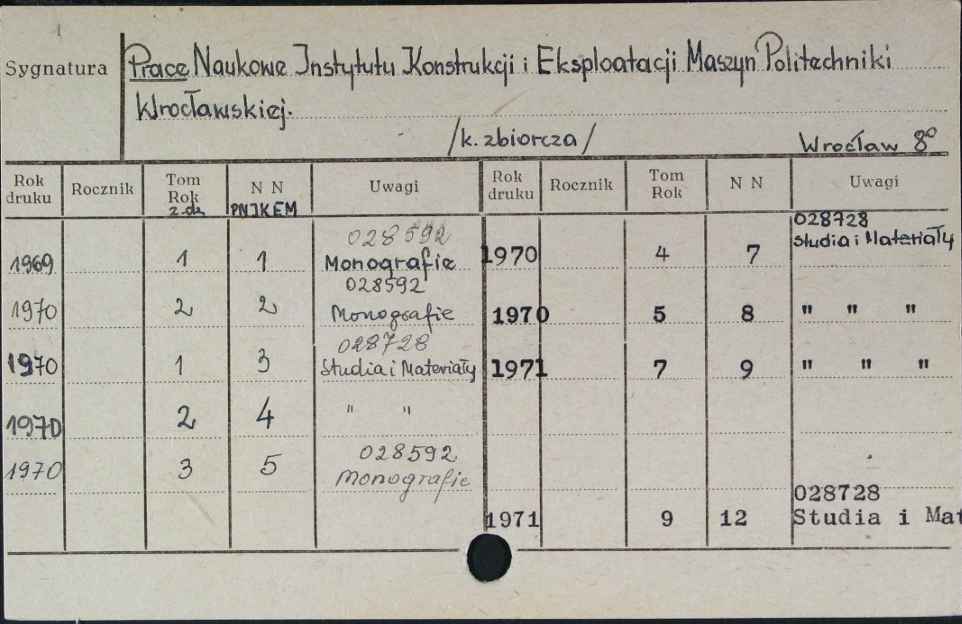 Sygnatura Prace Naukowe Instytutu Konstrukcji i Eksploatacji Maszyn Politechniki
Wrocławskiej.
/k. zbiorcza/ Wrocław 8°
Rok druku Rocznik Tom Rok z. dz N N PNIKEM Uwagi Rok druku Rocznik Tom Rok N N Uwagi
1969 1 1 028592 Monografie 1970 4 7 028728 Studia i Materiały
1970 2 2 028592 Monografie 1970 5 8 " " "
1970 1 3 028728 Studia i Materiały 1971 7 9 " " "
1970 2 4 " "
1970 3 5 028592 Monografie
1971 9 12 028728 Studia i Mat